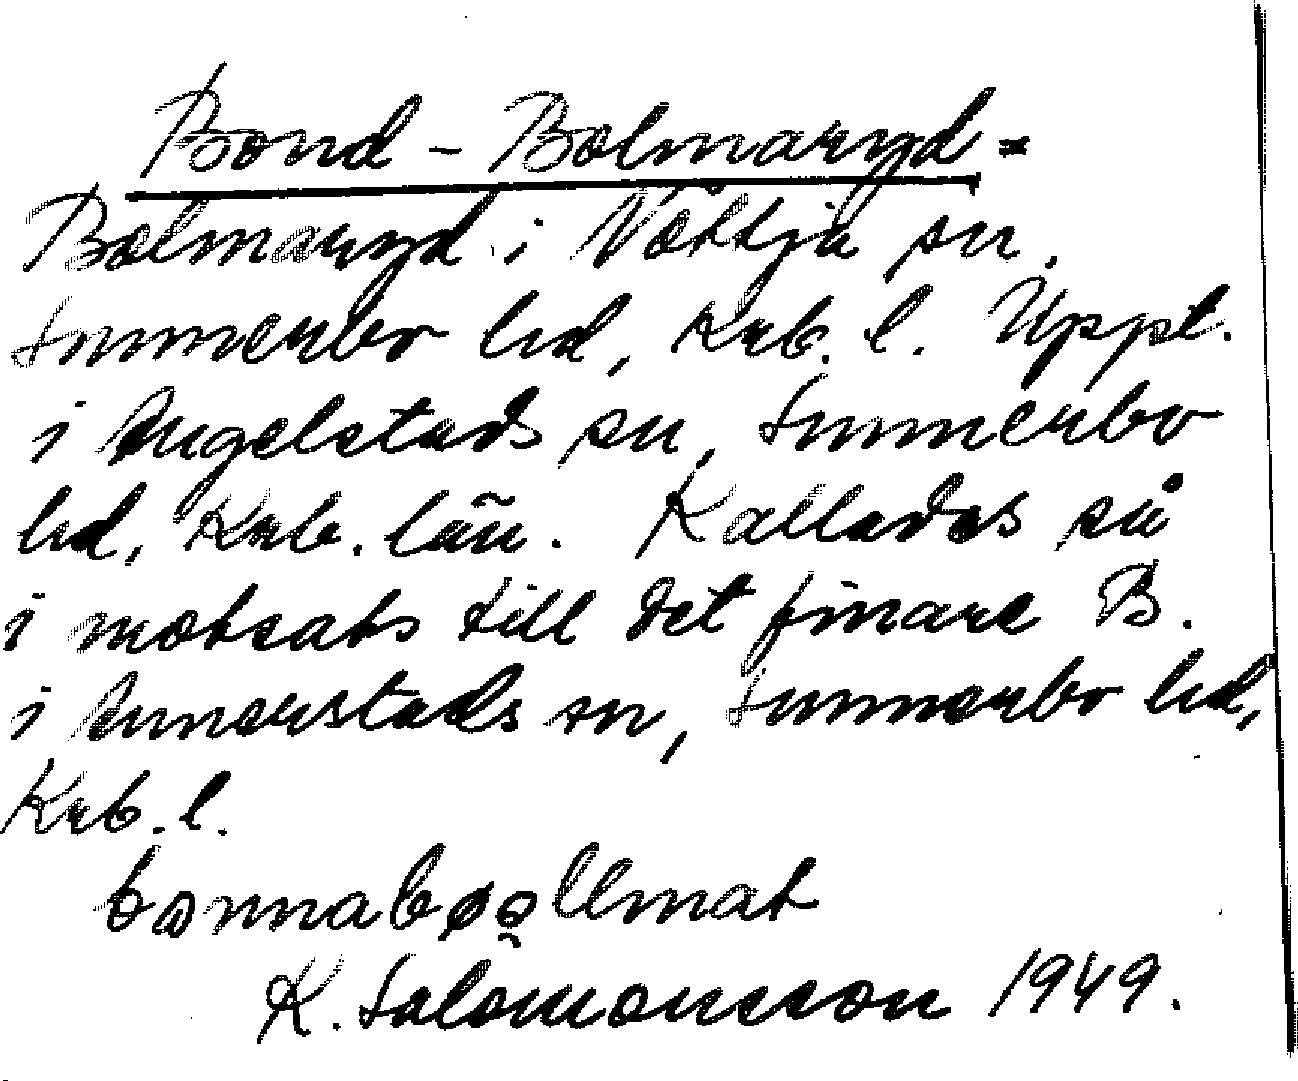 Bond-Bolmaryd =
Bolmaryd i Vöttja sn,
Sunnerbo hd, Krb. l. Uppt.
i Angelstads sn, Sunnerbo
hd, Krb. län. Kallades så
i motsats till det finare B.
i Annerstads sn, Sunnerbo hd,
Krb. l.
K. Salomonsson 1949.